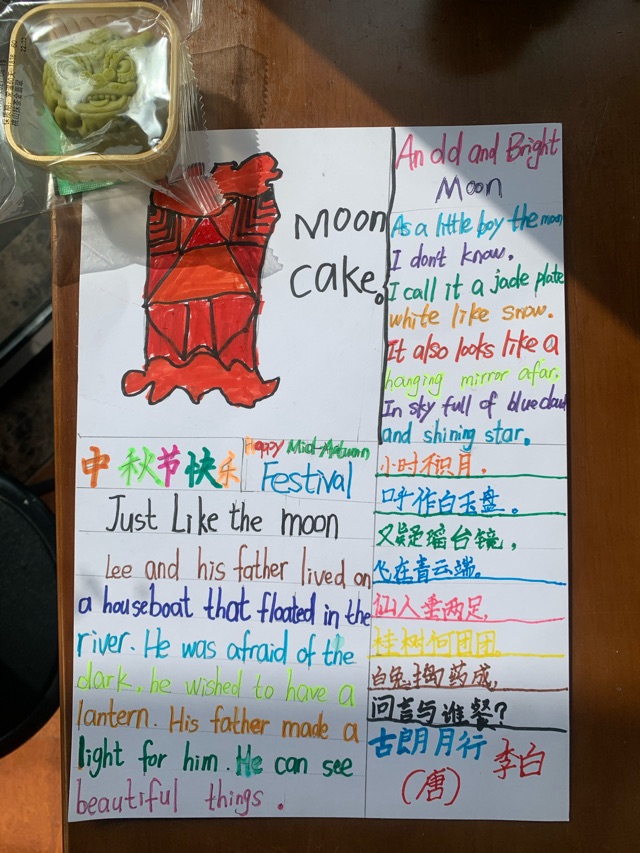 Moon
cake.
An old and Bright
Moon
As a little boy the moon
I don't know.
I call it a jade plate
white like snow.
It also looks like a
hanging mirror afar.
In sky full of blue cloud
and shining star.
小时不识月，
呼作白玉盘。
又疑瑶台镜，
飞在青云端。
仙人垂两足，
桂树何团团。
白兔捣药成，
问言与谁餐？
古朗月行
李白
（唐）
中秋节快乐
Happy Mid-Autumn
Festival
Just Like the moon
Lee and his father lived on
a houseboat that floated in the
river. He was afraid of the
dark, he wished to have a
lantern. His father made a
light for him. He can see
beautiful things.